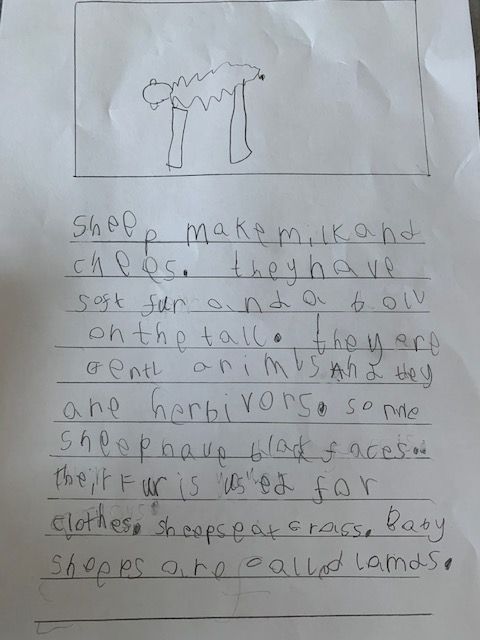 sheep make milk and
chees. they have
soft fur and a boll
on the tall. they are
gentl animls and they
are herbivors. some
sheep have black faces.
their Fur is used for
clothes. sheeps eat Grass. Baby
sheeps are called lamds.